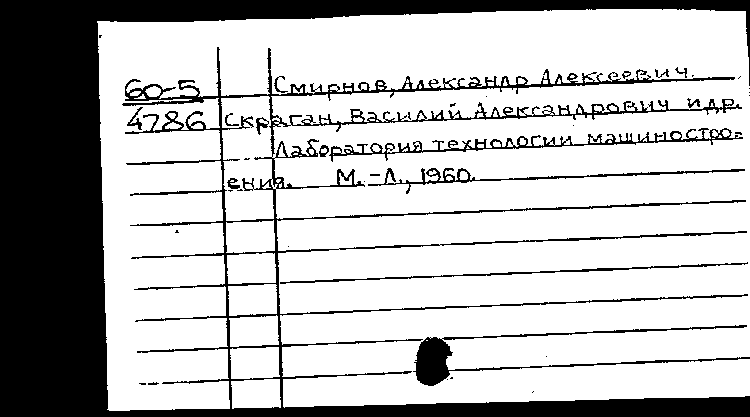 60-5 Смирнов, Александр Алексеевич.
4786 Скраган, Василий Александрович и др.
Лаборатория технологии машинострo=
ения. М.-Л., 1960.